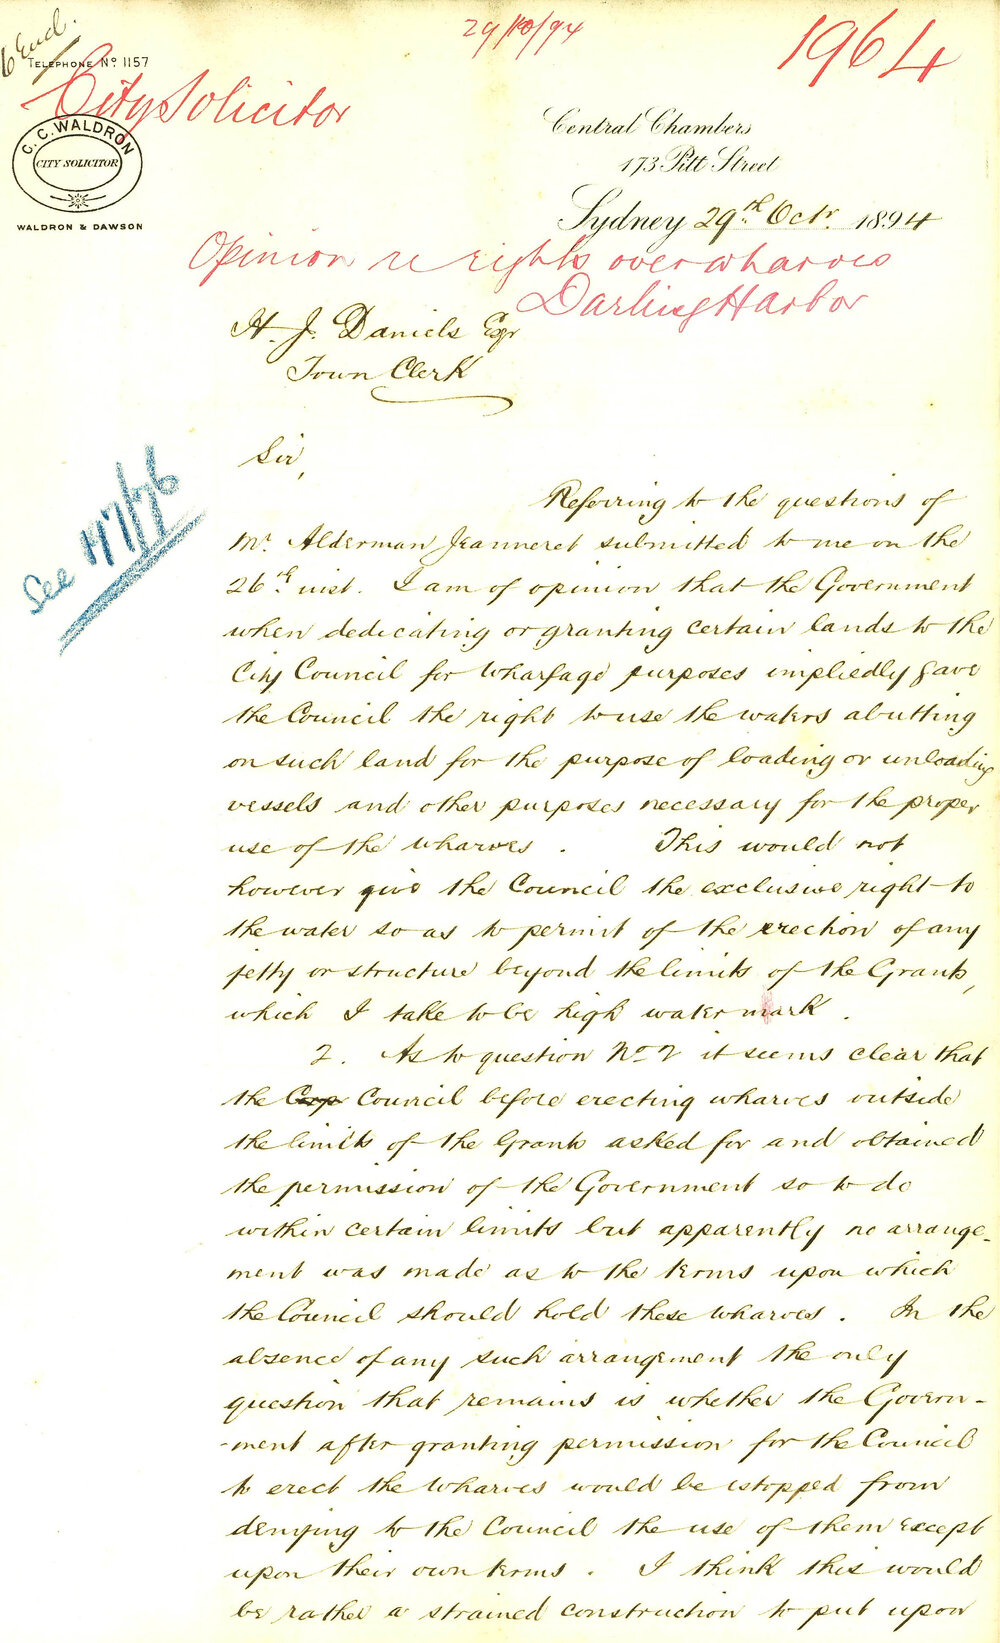 6 Encl.
29/10/94
1964
TELEPHONE No 1157
City Solicitor
C. C. WALDRON
CITY SOLICITOR
WALDRON & DAWSON
Central Chambers
173 Pitt Street
Sydney 29th Octr. 1894
Opinion re rights over wharves
Darling Harbor
H. J. Daniels Esqr
Town Clerk
See 177/76
Sir,
Referring to the questions of
Mr. Alderman Jeanneret submitted to me on the
26th inst. I am of opinion that the Government
when dedicating or granting certain lands to the
City Council for wharfage purposes impliedly gave
the Council the right to use the waters abutting
on such land for the purpose of loading or unloading
vessels and other purposes necessary for the proper
use of the wharves . This would not
however give the Council the exclusive right to
the water so as to permit of the erection of any
jetty or structure beyond the limits of the Grants,
which I take to be high water mark .
2. As to question No 2 it seems clear that
the Corp Council before erecting wharves outside
the limits of the Grants asked for and obtained
the permission of the Government so to do
within certain limits but apparently no arrange-
ment was made as to the terms upon which
the Council should hold these wharves . In the
absence of any such arrangement the only
question that remains is whether the Govern-
-ment after granting permission for the Council
to erect the wharves would be estopped from
denying to the Council the use of them except
upon their own terms . I think this would
be rather a strained construction to put upon